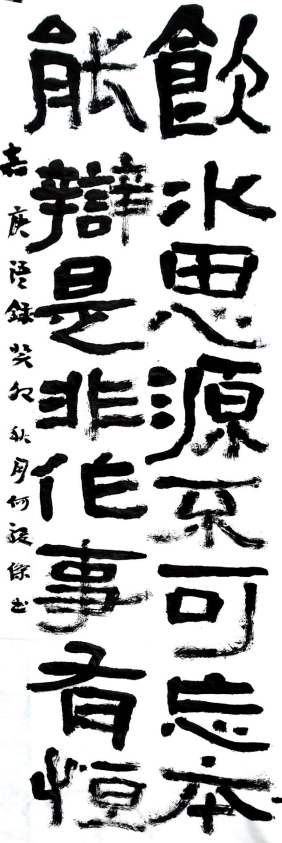 飲水思源不可忘本
能辯是非作事有恒
嘉庚語錄癸卯秋月何 保书